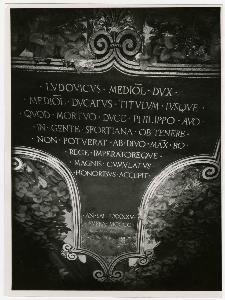 LVDOVICVS · MEDIOL · DVX ·
MEDIOL · DVCATVS · TITVLVM · IVSQVE ·
QVOD · MORTVO · DVCE · PHILIPPO · AVO ·
IN · GENTE · SFORTIANA · OB TENERE ·
NON · POTVERAT · AB · DIVO · MAX · RO ·
REGE · IMPERATOREQVE ·
MAGNIS · CVMVLATVS ·
HONORIBVS · ACCEPIT ·